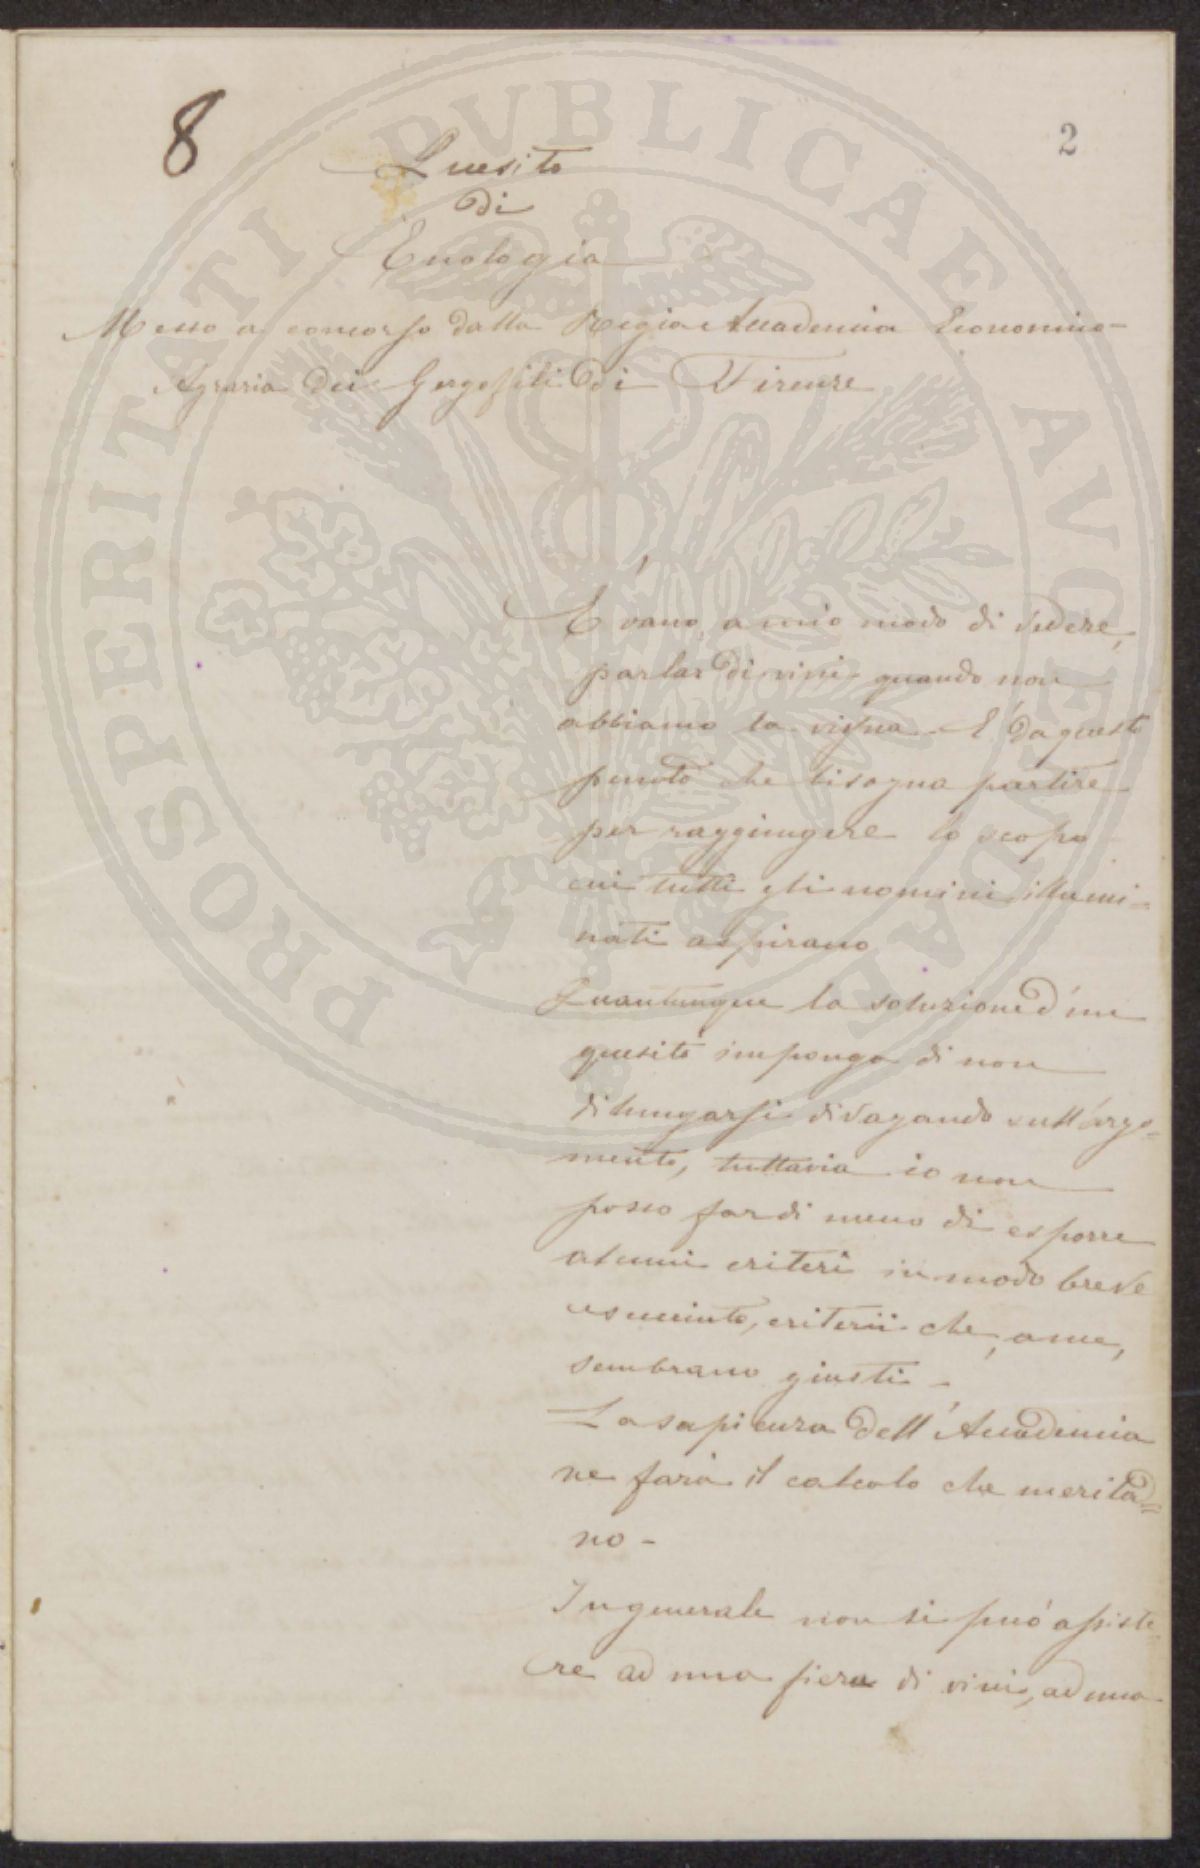 8
2
Quesito
di
Enologia
Messo a concorso dalla Regia Accademia Economico-
Agraria dei Georgofili di Firenze
É vano, a mio modo di vedere,
parlar di vini quando non
abbiamo la vigna. E' da questo
punto che bisogna partire
per raggiungere lo scopo
cui tutti gli uomini illumi=
nati aspirano
Quantunque la soluzione d'un
quesito imponga di non
dilungarsi divagando sull'argo=
mento, tuttavia io non
posso far di meno di esporre
alcuni criteri in modo breve
e sunnito, criterii che, a me,
sembrano giusti -
La sapienza dell'Accademia
ne farà il calcolo che merita=
no -
In generale non si può assiste
re ad una fiera di vini, ad una
PROSPERITATI PVBLICAE AVGENDAE